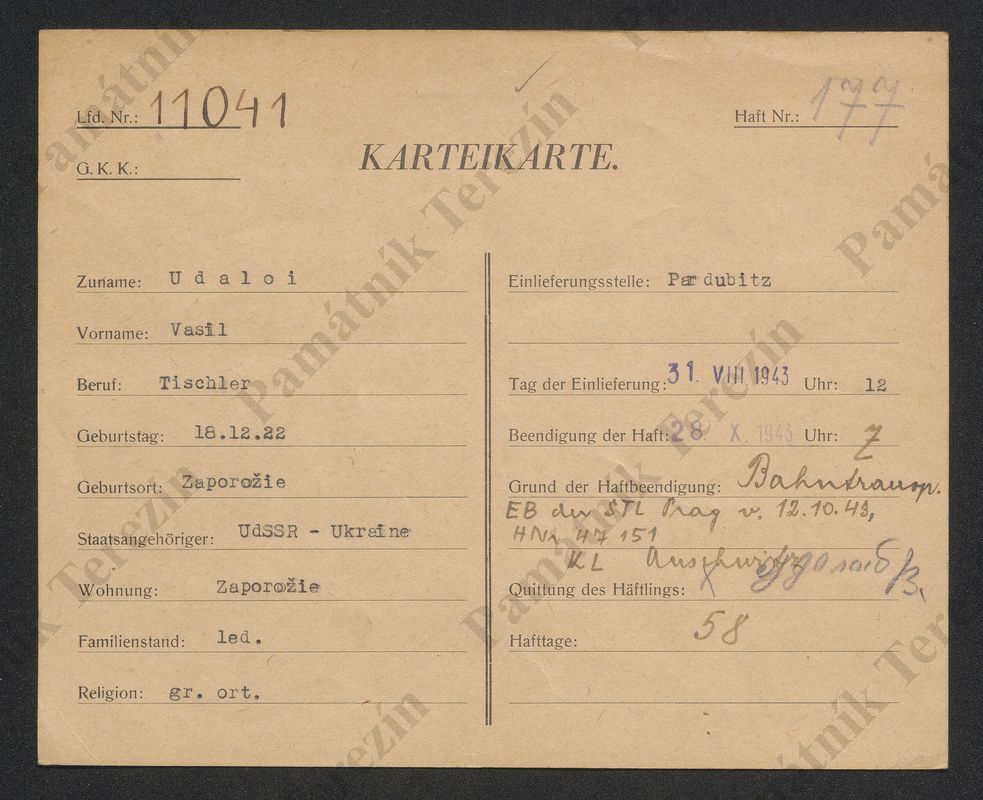 Lfd. Nr.: 11041
Haft Nr.: 177
G. K. K.:
KARTEIKARTE.
Zuname: Udaloi
Vorname: Vasil
Beruf: Tischler
Geburtstag: 18.12.22
Geburtsort: Zaporožie
Staatsangehöriger: UdSSR - Ukraine
Wohnung: Zaporožie
Familienstand: led.
Religion: gr. ort.
Einlieferungsstelle: Pardubitz
Tag der Einlieferung: 31. VIII 1943 Uhr: 12
Beendigung der Haft: 28 X. 1943 Uhr: 7
Grund der Haftbeendigung: Bahntransp.
EB der STL Prag v. 12.10.43,
HNr 47 151
KL Auschwitz
Quittung des Häftlings: X
Hafttage: 58
Památník Terezín